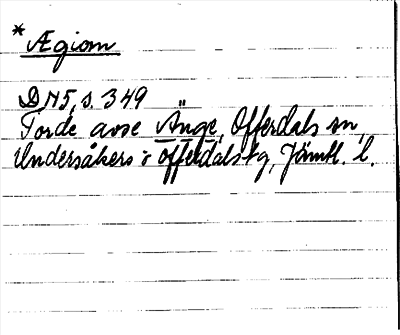 * Ægiom
DN5, s. 349
Torde avse Änge, Offerdals sn,
Undersåkers o Offerdals tg, Jämtl. l.